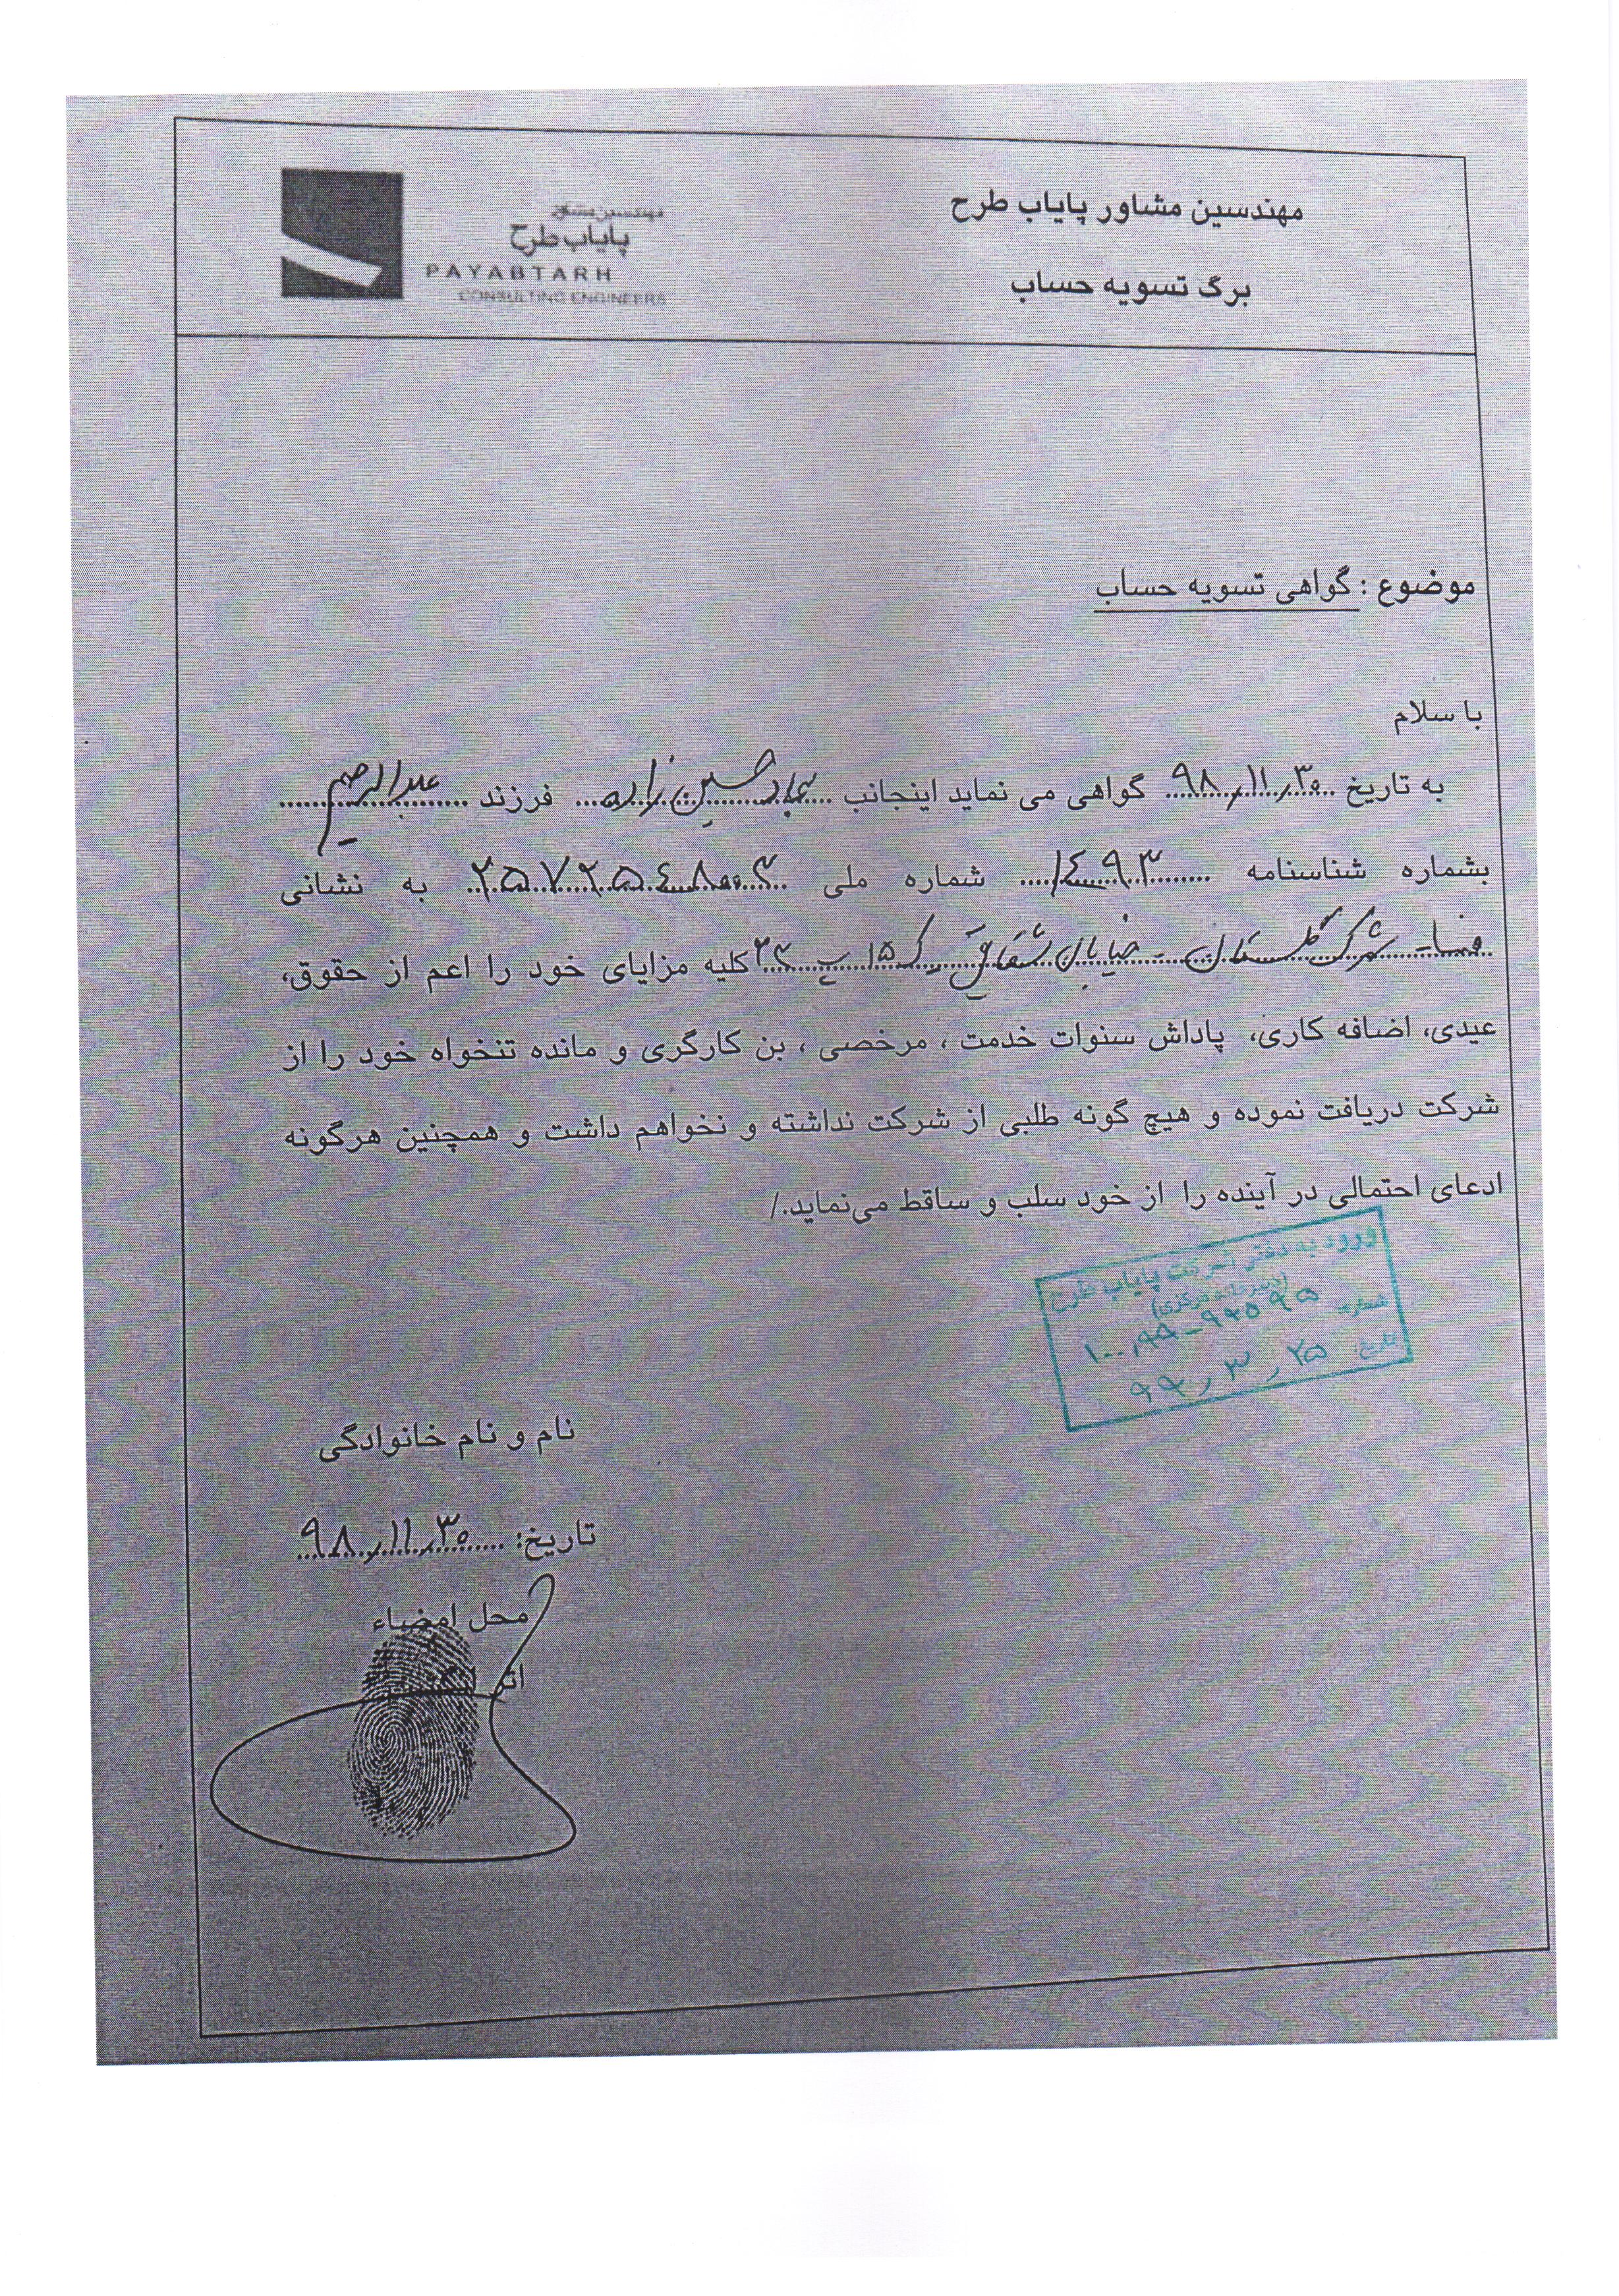 مهندسین مشاور پایاب طرح
برگ تسویه حساب
مهندسین مشاور
پایاب طرح
PAYABTARH
CONSULTING ENGINEERS
موضوع : گواهی تسویه حساب
با سلام
به تاریخ ۹۸٫۱۱٫۳۰ گواهی می نماید اینجانب حسین زاده فرزند عبدالرحیم
بشماره شناسنامه ۱۴۹۳ شماره ملی ۲۵۷۲۵۴۸۰۰۳ به نشانی
فسا - شهرک گلستان - خیابان شقایق ک ۱۵ پ ۳۲ کلیه مزایای خود را اعم از حقوق،
عیدی، اضافه کاری، پاداش سنوات خدمت ، مرخصی ، بن کارگری و مانده تنخواه خود را از
شرکت دریافت نموده و هیچ گونه طلبی از شرکت نداشته و نخواهم داشت و همچنین هرگونه
ادعای احتمالی در آینده را از خود سلب و ساقط می‌نماید./
ورود به دفتر شرکت پایاب طرح
(دبیرخانه مرکزی)
شماره:
تاریخ: ۹۹٫۳٫۲۵
نام و نام خانوادگی
تاریخ: ۹۸٫۱۱٫۳۰
محل امضاء
اثر